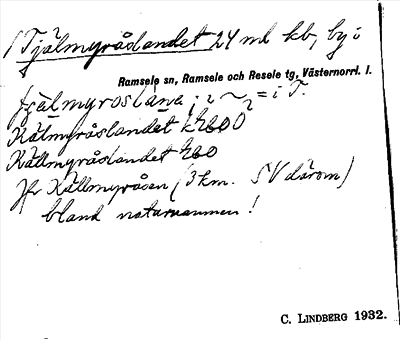 Tjälmyråslandet 24 ml kb, by i
Ramsele sn, Ramsele och Resele tg, Västernorrl. l.
i T.
Kälmyråslandet
Källmyråslandet
Jfr Källmyråsen (3 km. SV därom)
bland naturnamnen!
C. LINDBERG 1932.